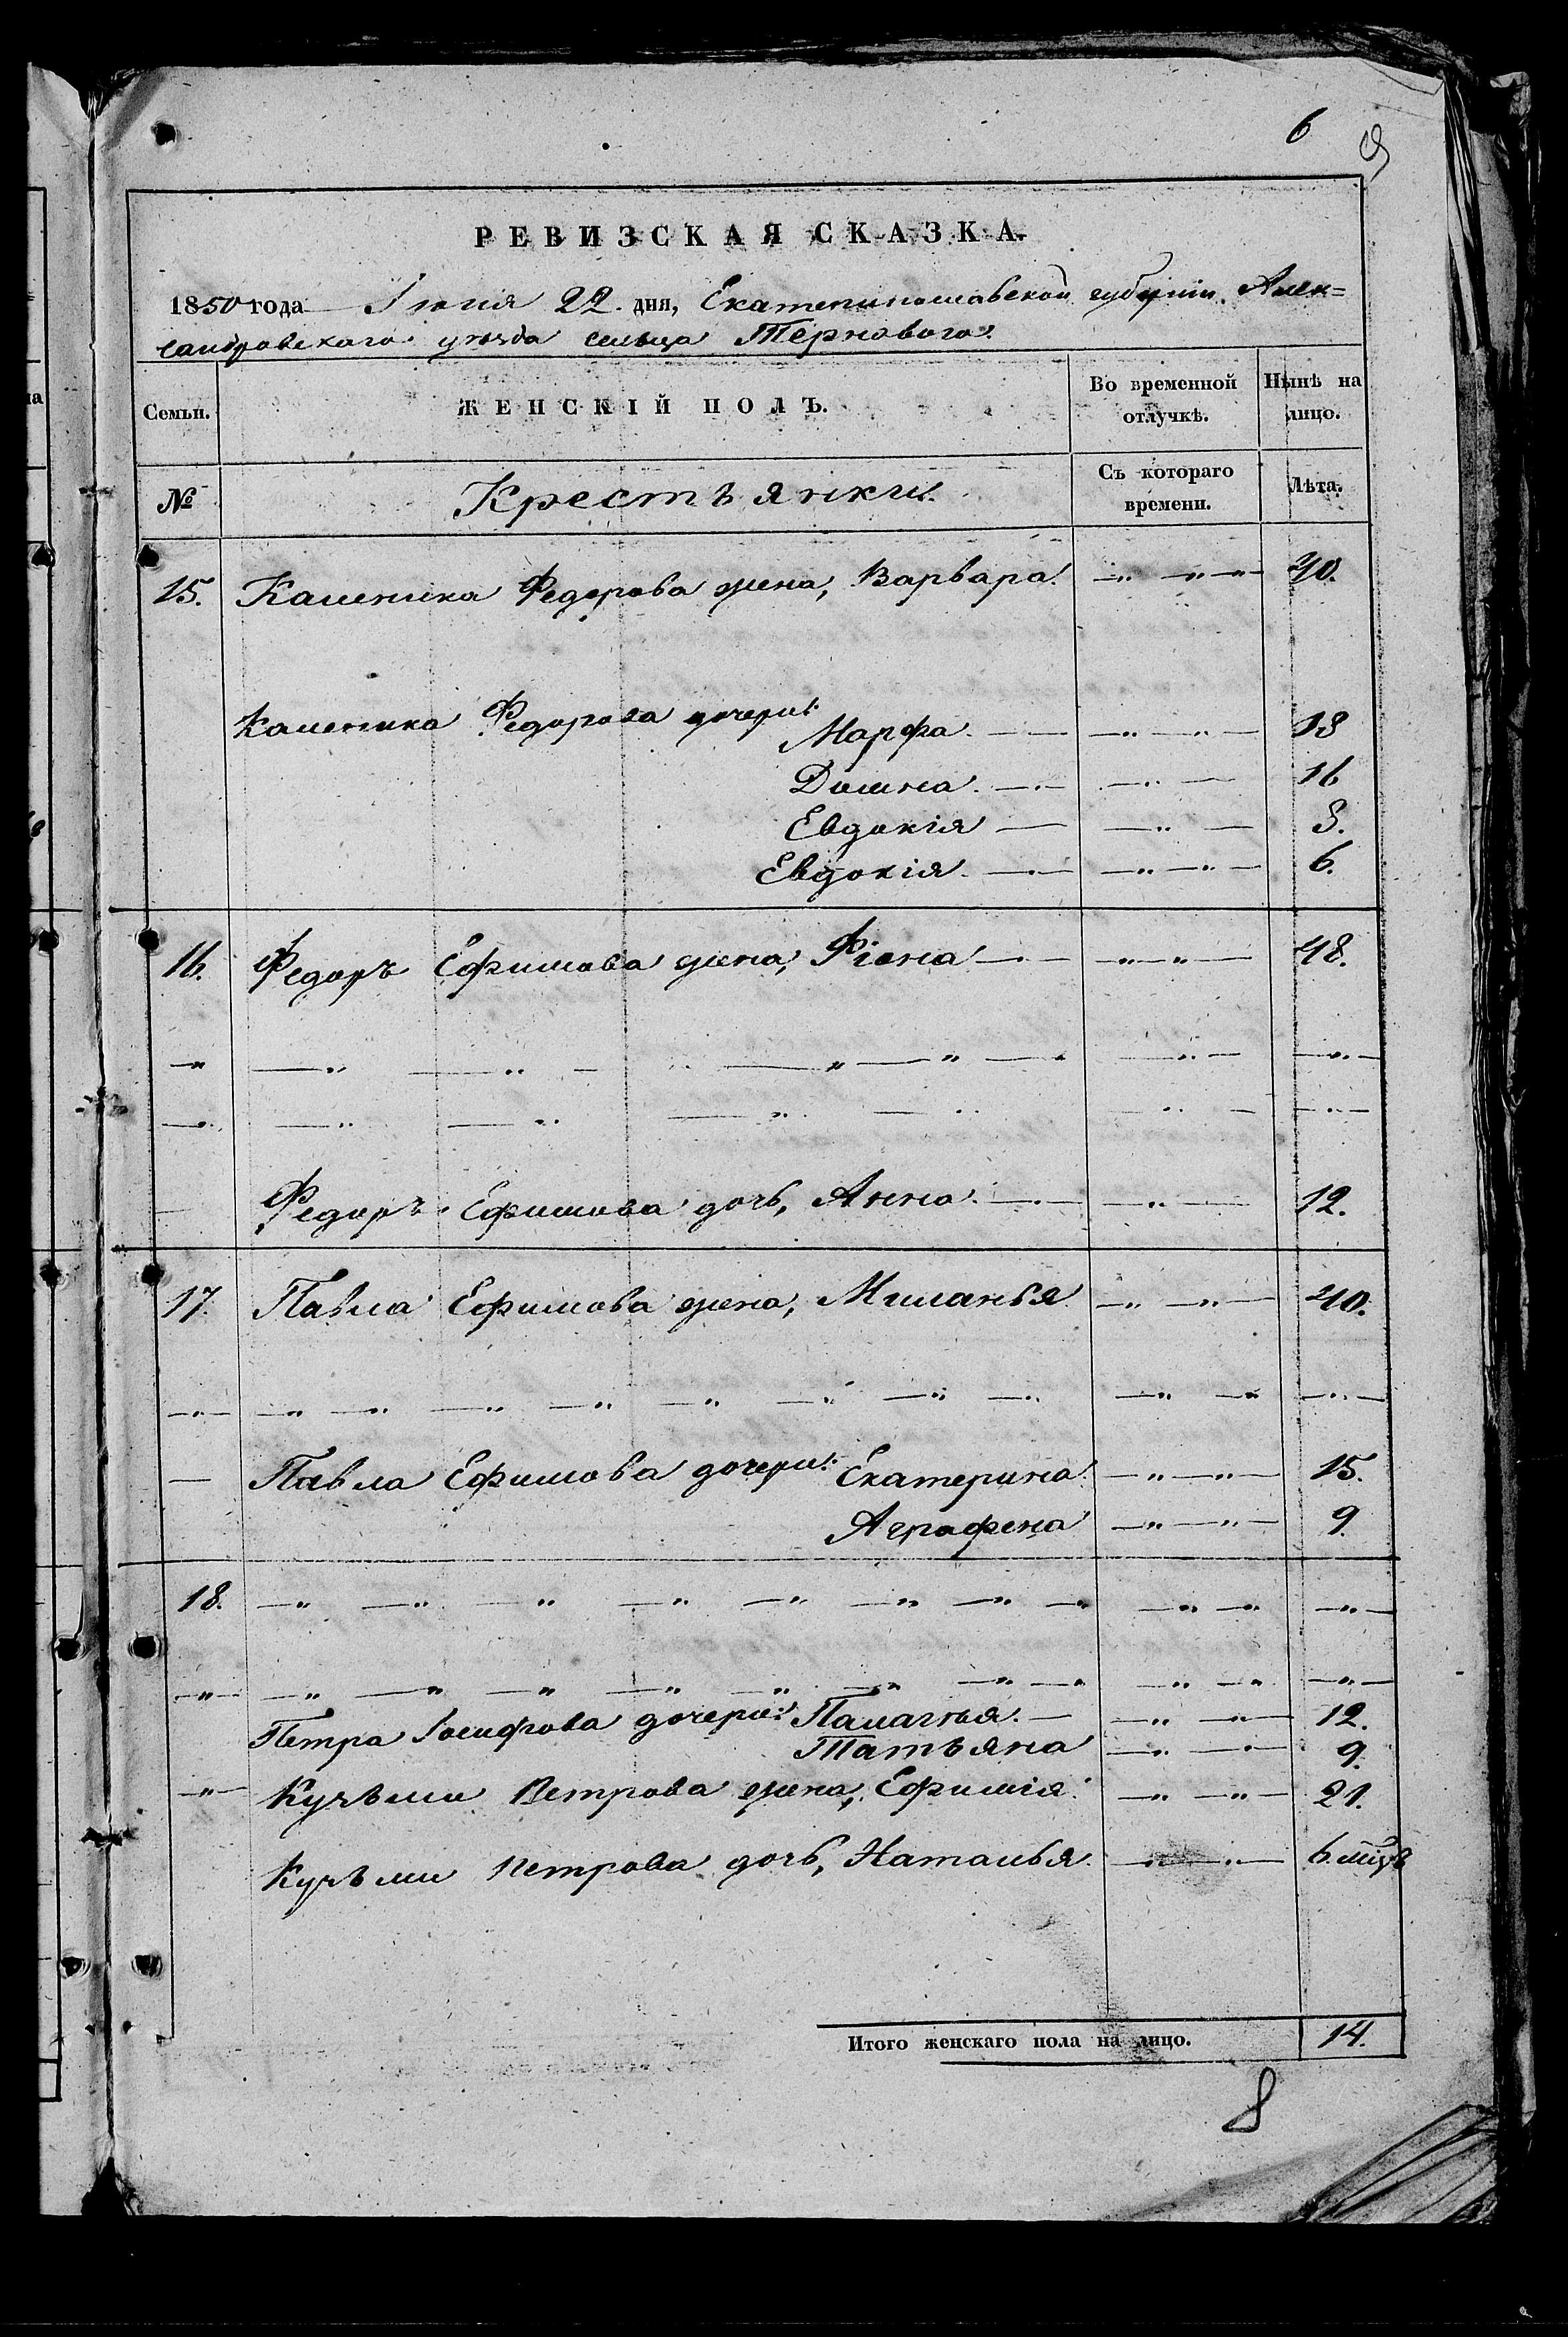 6
9
РЕВИЗСКАЯ СКАЗКА.
1850 года Іюня 22. дня, Екатеринославской губерніи. Алек=
сандровскаго уѣзда сельца Терноваго.
Семьи. ЖЕНСКІЙ ПОЛЪ. Во временной отлучкѣ. Нынѣ на лицо.
№ Крестьянки. Съ котораго времени. Лѣта.
15. Каленика Федорова жена, Варвара. —„ —„—„ 40.
Каленика Федорова дочери: Марфа. — —„—„— 18
Домна. —„— —„— 16
Евдокія — —„— 8.
Евдокія. —„— —„—„— 6.
16. Федоръ Ефимова жена, Фіона —„— „—„— 48.
—„ —„ —„ — —„—„ — —„— —„—
—„ —„ —„ —„ —„ —„— —„—
Федоръ Ефимова дочь, Анна. —„— —„— 12.
17. Павла Ефимова жена, Миланья —„ —„— 40.
—„— —„ —„ —„ —„ —„ —„ —„ —„ —„ —„ —„—
— Павла Ефимова дочери: Екатерина. —„—„— 15.
Аграфена —„—„— 9.
18. —„ —„ —„ —„ —„ —„ —„ —„ —„ —„ —„—
—„— —„ —„ —„ —„ —„ —„ —„ —„ —„ —„ —„—
Петра Іосифова дочери: Палагья. — —„ —„— 12.
Татьяна —„ —„— 9.
—„— Кузьми Петрова жена, Ефимія. —„ —„— 21.
Кузьми Петрова дочь, Наталья. —„—„— 6. мцѣ
Итого женскаго пола на лицо. 14.
8